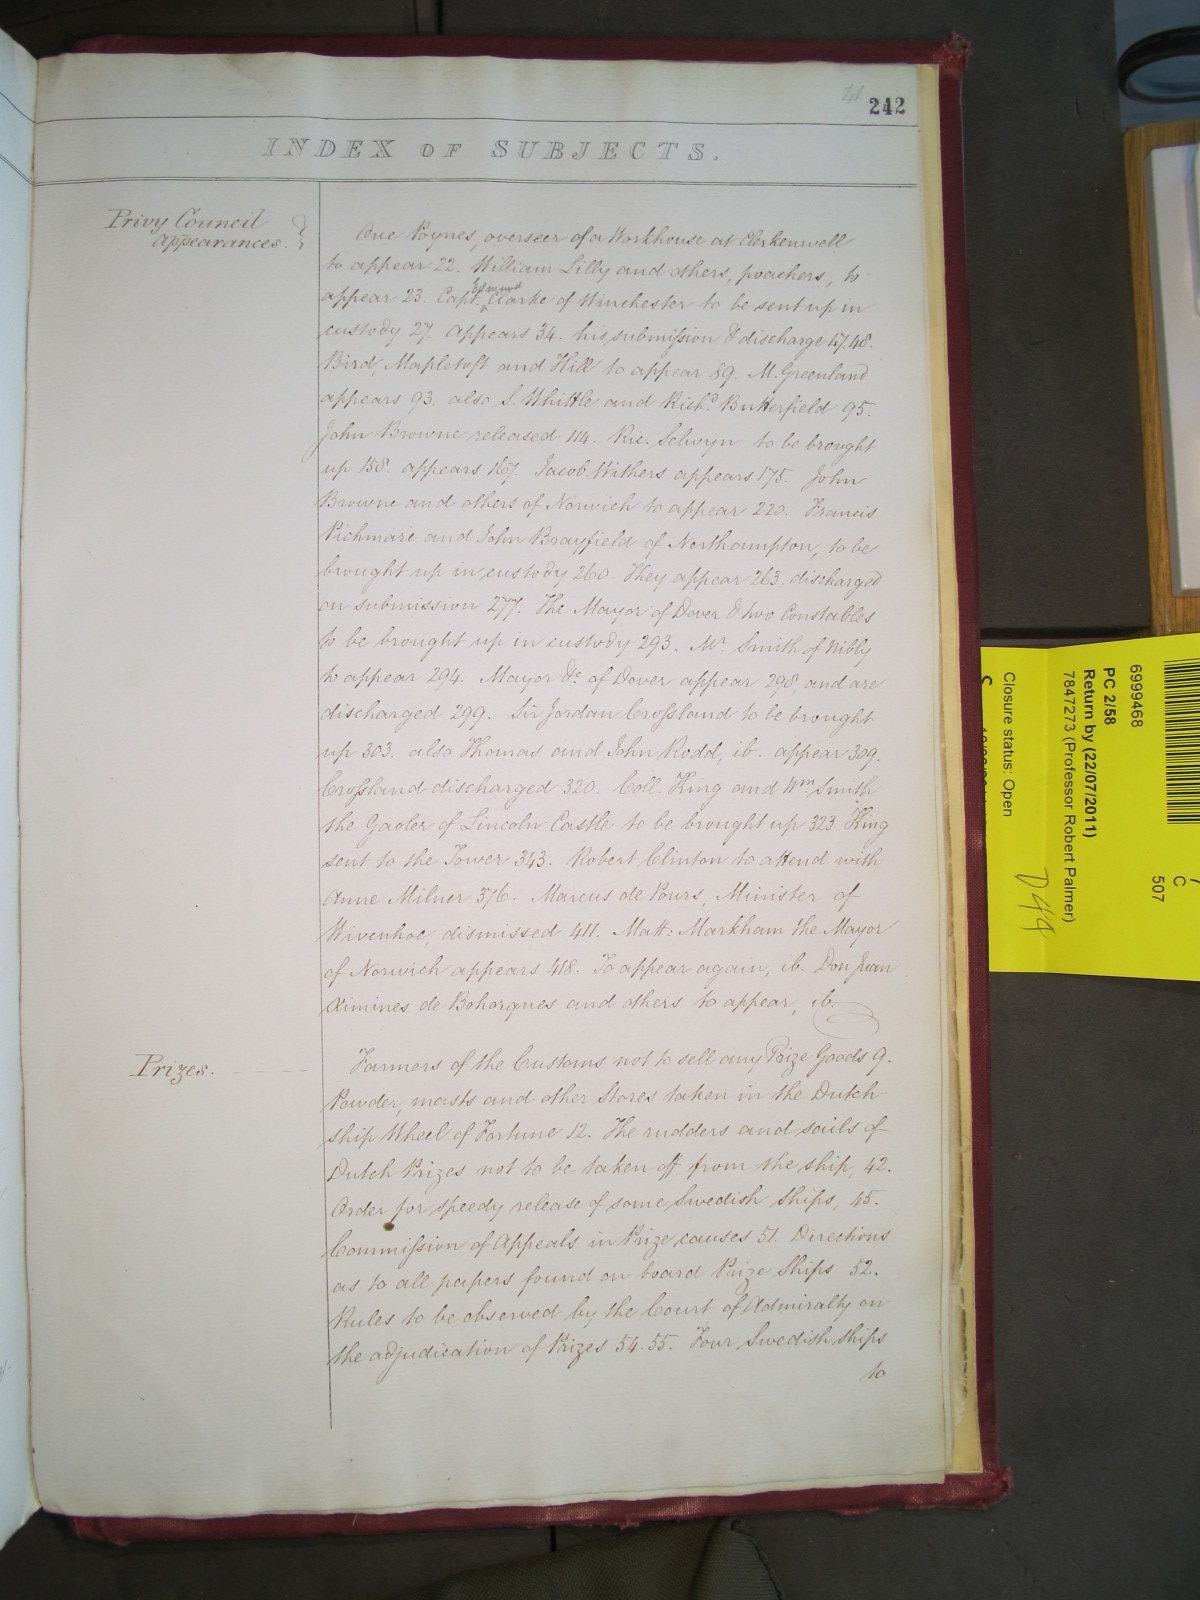 242
INDEX OF SUBJECTS.
Privy Council
appearances.
One Poynes, overseer of a Workhouse at Clerkenwell
to appear 22. William Lilly and others, poachers, to
appear 23. Capt. Edmund Clarke of Winchester to be sent up in
custody 27. Appears 34. his submission & discharge 47.48.
Bird, Mapletoft and Hill to appear 89. M. Greenland
appears 93. also S. Whittle and Richd. Butterfield 95.
John Browne released 114. Ric. Selwyn to be brought
up 158. appears 167. Jacob Withers appears 175. John
Browne and others of Norwich to appear 220. Francis
Pichmare and John Brayfield of Northampton, to be
brought up in custody 260. They appear 263. discharged
on submission 277. The Mayor of Dover & two Constables
to be brought up in custody 293. Mr. Smith of Nibly
to appear 294. Mayor &c of Dover appear 298, and are
discharged 299. Sir Jordan Crossland to be brought
up 303. also Thomas and John Rodd, ib. appear 309.
Crossland discharged 320. Coll. King and Wm. Smith
the Gaoler of Lincoln Castle to be brought up 323 King
sent to the Tower 343. Robert Clinton to attend with
Anne Milner 376. Marcus de Pours, Minister of
Wivenhoe, dismissed 411. Matt: Markham the Mayor
of Norwich appears 418. To appear again, ib. Don Juan
Ximines de Bohorques and others to appear, ib.
Prizes.
Farmers of the Customs not to sell any Prize Goods 9.
Powder, masts and other Stores taken in the Dutch
ship Wheel of Fortune 12. The rudders and sails of
Dutch Prizes not to be taken off from the ship, 42.
Order for speedy release of some Swedish Ships, 45.
Commission of Appeals in Prize causes 51. Directions
as to all papers found on board Prize Ships 52.
Rules to be observed by the Court of Admiralty on
the adjudication of Prizes 54-55. Four Swedish ships
to
6999468
PC 2/58
Return by (22/07/2011)
7847273 (Professor Robert Palmer)
Closure status: Open
C
507
D49